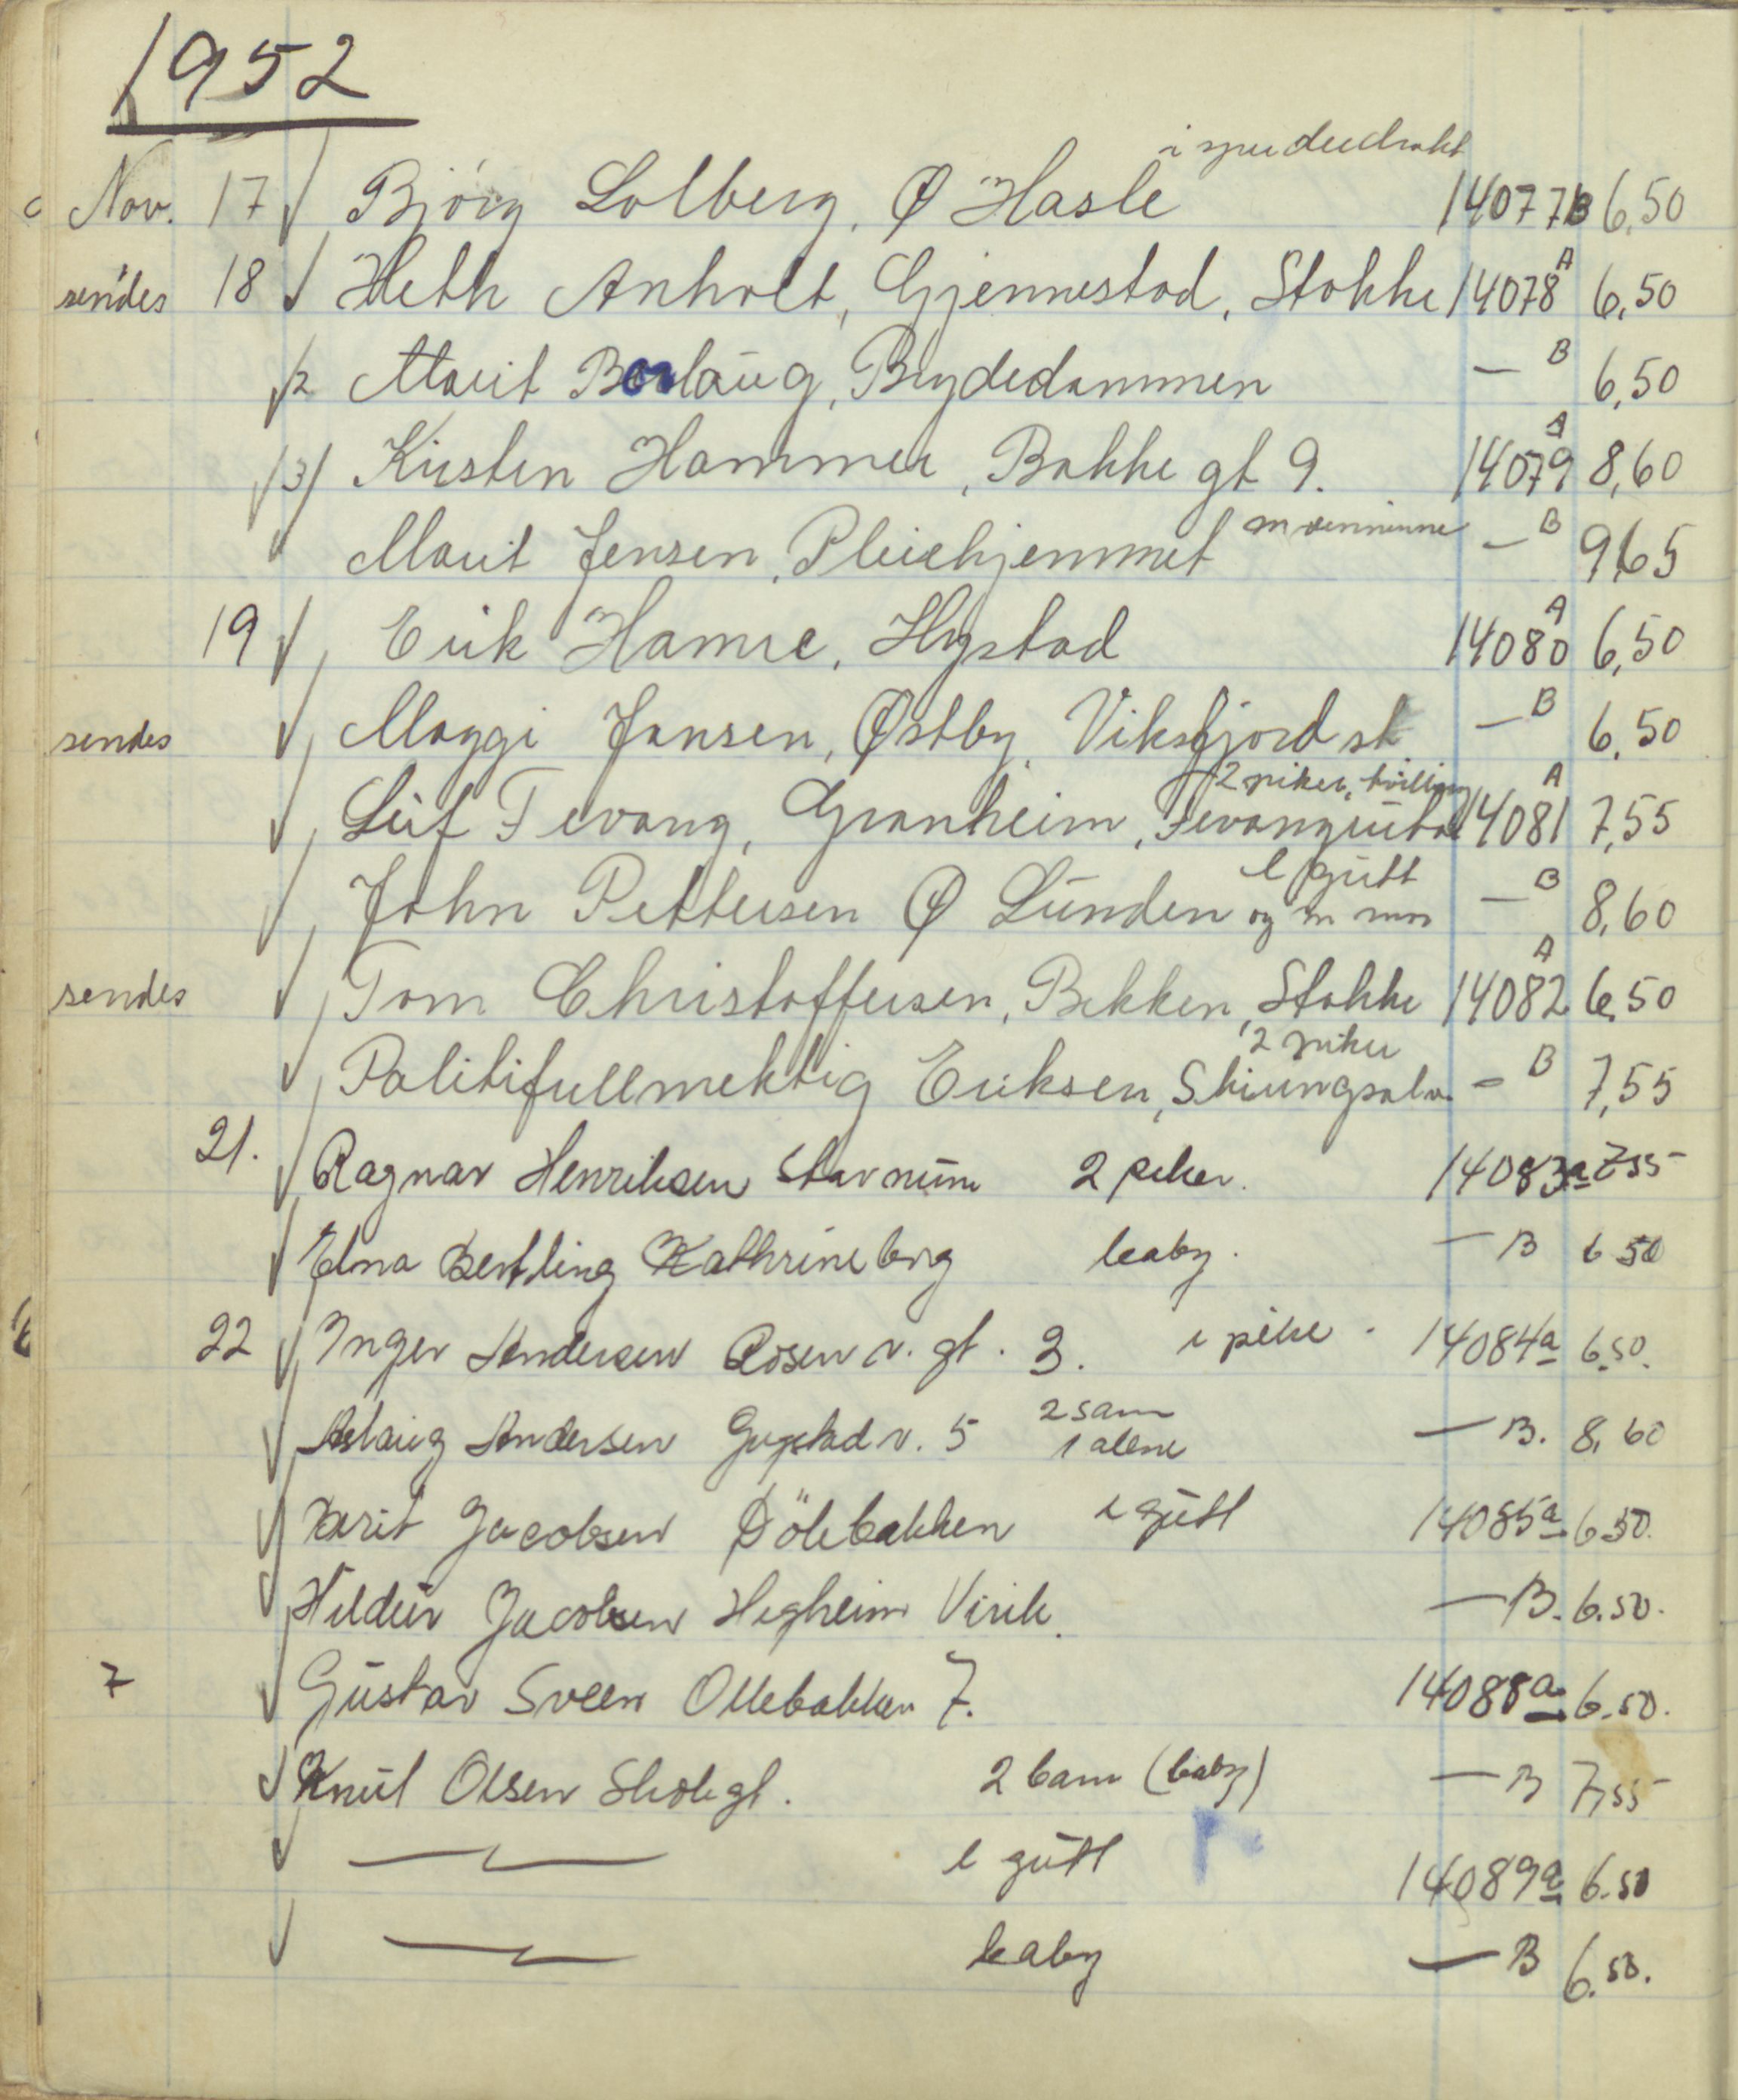 1952
i speiderdrakt
Nov. 17 Bjørg Solberg, Ø Hasle 14077B 6,50
sendes 18 Heth Anholt, Gjennestad, Stokke 14078 A 6,50
2 Marit Borlaug, Brydedammen — B 6,50
3) Kirsten Hammer, Bakke gt 9. 14079 A 8,60
Marit Jensen, Pleiehjemmet m venninne — B 9,65
19 Erik Hamre, Hystad 14080 A 6,50
sendes Maggi Jansen, Østby, Viksfjord st — B 6,50
2 piker, tvilling
Leif Fevang, Granheim, Fevangrutas 14081 A 7,55
1 gutt
John Pettersen Ø Lunden og m mor — B 8,60
sendes Tom Christoffersen, Bekken, Stokke 14082 A 6,50
2 piker
Politifullmektig Eriksen, Skiringsalv. — B 7,55
21. Ragnar Henriksen Stavnum 2 piker. 14083a 755
Elna Bertling Kathrineborg baby. — B 6 50
22 Inger Andersen Rosenv. gt. 3. 1 pike. 14084a 6.50.
2 sam
Aslaug Andersen Gogstad v. 5 1 alene — B. 8,60
Berit Jacobsen Dölebakken 1 gutt 14085a 6 50.
Hildur Jacobsen Hegheim Virik. — B. 6.50.
7 Gustav Sveen Ollebakken 7. 14088a 6.50.
Knut Olsen Skolegt. 2 barn (baby) — B 7,55
—〃— 1 gutt 14089a 6.50
—〃— baby — B 6.50.